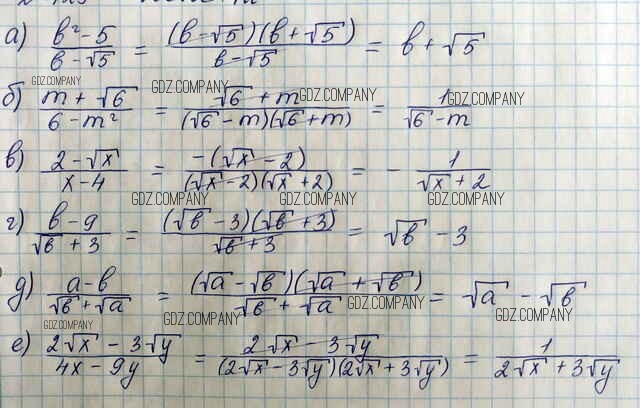 а) (b² - 5)/(b - √5) = ((b - √5)(b + √5))/(b - √5) = b + √5
GDZ.COMPANY GDZ.COMPANY GDZ.COMPANY GDZ.COMPANY
б) (m + √6)/(6 - m²) = (√6 + m)/((√6 - m)(√6 + m)) = 1/(√6 - m)
в) (2 - √x)/(x - 4) = (-(√x - 2))/((√x - 2)(√x + 2)) = - 1/(√x + 2)
GDZ.COMPANY GDZ.COMPANY GDZ.COMPANY
г) (b - 9)/(√b + 3) = ((√b - 3)(√b + 3))/(√b + 3) = √b - 3
д) (a - b)/(√b + √a) = ((√a - √b)(√a + √b))/(√b + √a) = √a - √b
GDZ.COMPANY GDZ.COMPANY GDZ.COMPANY GDZ.COMPANY
е) (2√x - 3√y)/(4x - 9y) = (2√x - 3√y)/((2√x - 3√y)(2√x + 3√y)) = 1/(2√x + 3√y)